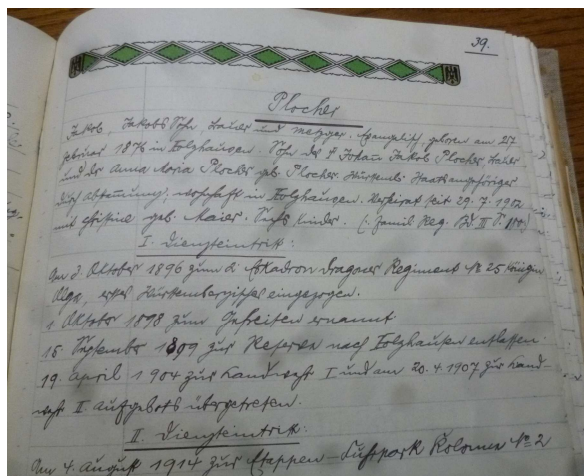 39.
Plocher
Jakob, Jakobs Sohn, Bauer und Metzger. Evangelisch geboren am 27
Februar 1876 in Holzhausen. Sohn des † Johann Jakob Plocher Bauer
und der Anna Maria Plocher geb. Plocher. Württemb. Staatsangehöriger
durch Abstammung, wohnhaft in Holzhausen. Verheirat seit 29.7.1902
mit Christine geb. Maier. Sechs Kinder. (: Famil Reg. Bd. III S.
I. Diensteintritt:
Am 3. Oktober 1896 zum 2. Eskadron Dragoner Regiment № 25 Königin
Olga, erstes Württembergisches eingezogen.
1. Oktober 1898 zum Gefreiten ernannt
15. September 1899 zur Reserve nach Holzhausen entlassen.
19. April 1904 zur Landwehr I und am 20.4.1907 zur Land-
wehr II Aufgebots übergetreten.
II. Diensteintritt:
Am 4. August 1914 zur Etappen-Fuhrpark Kolonne № 2